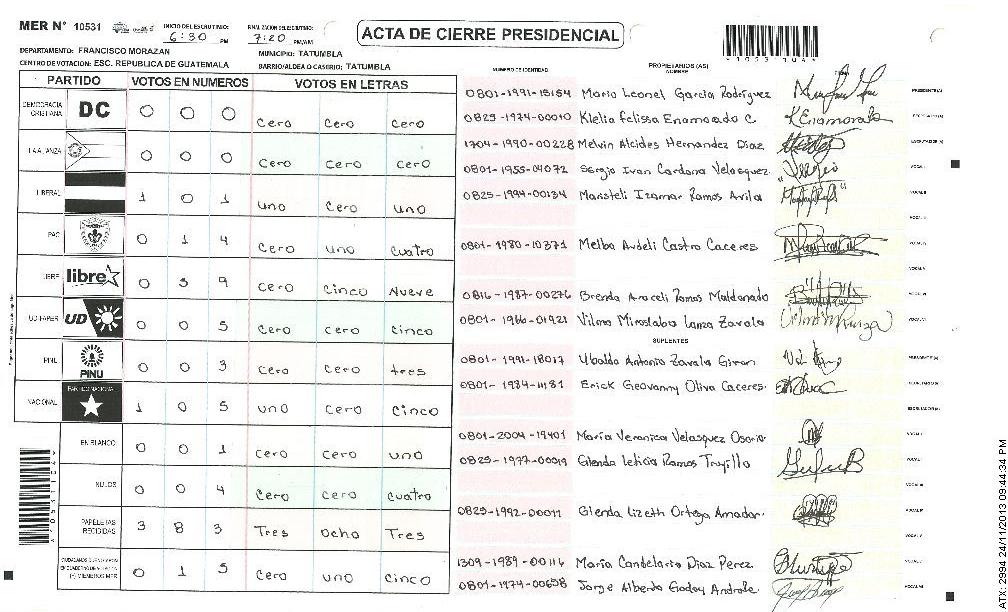 MER N° 10531
INICIO DEL ESCRUTINIO: 6:30 PM
FINALIZACION DEL ESCRUTINIO: 7:20 PM/AM
ACTA DE CIERRE PRESIDENCIAL
DEPARTAMENTO: FRANCISCO MORAZAN
MUNICIPIO: TATUMBLA
CENTRO DE VOTACION: ESC. REPUBLICA DE GUATEMALA
BARRIO/ALDEA O CASERIO: TATUMBLA
PARTIDO VOTOS EN NUMEROS VOTOS EN LETRAS
DEMOCRACIA CRISTIANA DC 0 0 0 cero cero cero
LA ALIANZA 0 0 0 cero cero cero
LIBERAL 1 0 1 uno cero uno
PAC 0 1 4 cero uno cuatro
LIBRE libre 0 5 9 cero cinco nueve
UD FAPER UD 0 0 5 cero cero cinco
PINU PINU 0 0 3 cero cero tres
NACIONAL PARTIDO NACIONAL 1 0 5 uno cero cinco
EN BLANCO 0 0 1 cero cero uno
NULOS 0 0 4 cero cero cuatro
PAPELETAS RECIBIDAS 3 8 3 Tres ocho Tres
0 1 5 cero uno cinco
NUMERO DE IDENTIDAD
PROPIETARIOS (AS)
NOMBRE
FIRMA
0801-1991-15154 Mario Leonel García Rodríguez PRESIDENTE(A)
0825-1974-00010 Klelia Felissa Enamorado C K Enamorado
1704-1990-00228 Melvin Alcides Hernandez Diaz
0801-1955-04072 Sergio Ivan Cardona Velasquez
0825-1994-00134 Maristeli Izamar Ramos Avila
0801-1980-10371 Melba Ardeli Castro Caceres
0816-1987-00276 Brenda Araceli Ramos Maldonado
0801-1966-01921 Vilma Miroslaba Lanza Zavala
SUPLENTES
0801-1991-18017 Ubaldo Antonio Zavala Giron PRESIDENTE (A)
0801-1984-11181 Erick Geovanny Oliva Caceres SECRETARIO (A)
ESCRUTADOR (A)
0801-2004-19401 María Veronica Velasquez Osorio
0825-1977-00019 Glenda Leticia Ramos Trujillo
0825-1992-00011 Glenda Lizeth Ortega Amador
1309-1989-00116 Maria Candelaria Diaz Perez
0801-1974-00658 Jorge Alberto Godoy Andrade
ATX: 2994 24/11/2013 09:44:34 PM